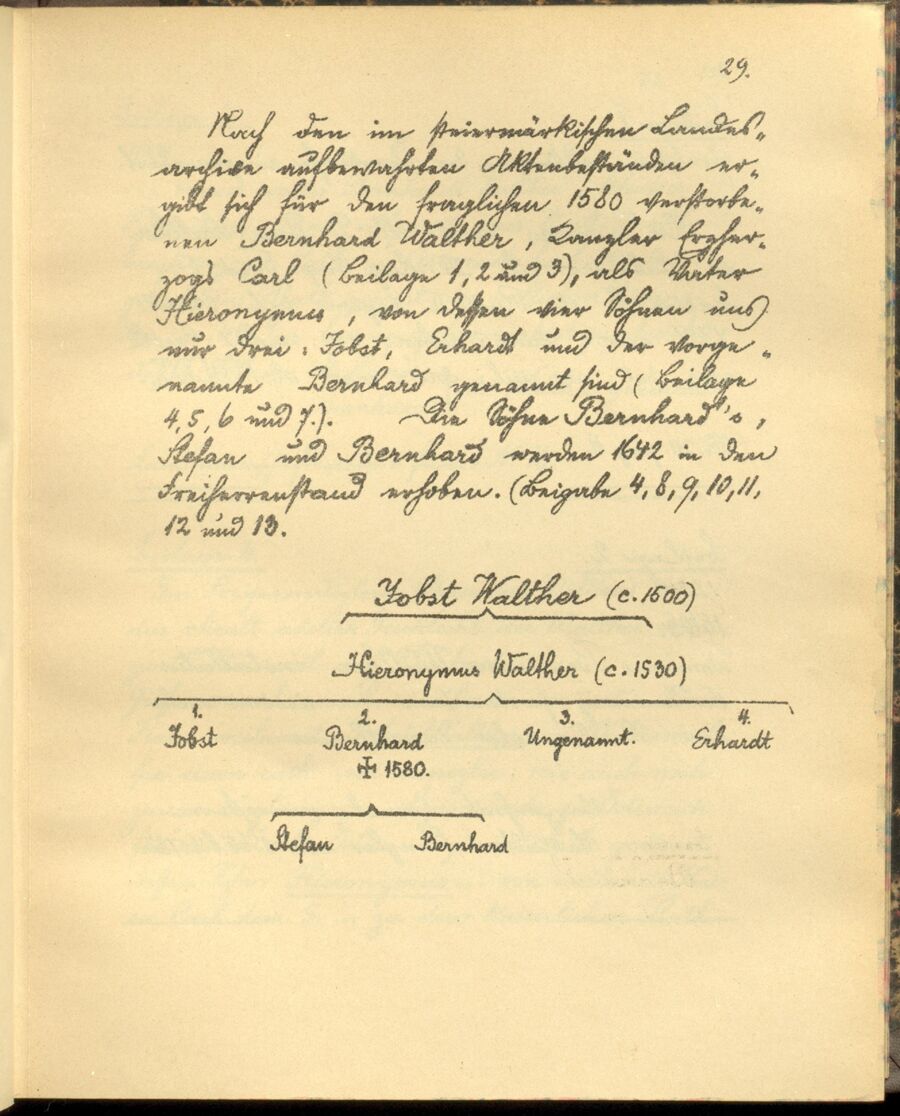 29.
Nach den im steiermärkischen Landes„
archive aufbewahrten Aktenbeständen er„
gibt sich für den fraglichen 1580 verstorbe„
nen Bernhard Walther, Kanzler Erzher„
zogs Carl (Beilage 1, 2 und 3), als Vater
Hieronymus, von dessen vier Söhnen uns
nur drei: Jobst, Erhardt und der vorge„
nannte Bernhard genannt sind (Beilage
4, 5, 6 und 7.). Die Söhne Bernhard's,
Stefan und Bernhard werden 1642 in den
Freiherrenstand erhoben. (Beigabe 4, 8, 9, 10, 11,
12 und 13.
Jobst Walther (c. 1500)
Hieronymus Walther (c. 1530)
1. 2. 3. 4.
Jobst Bernhard Ungenannt. Erhardt
✠ 1580.
Stefan Bernhard